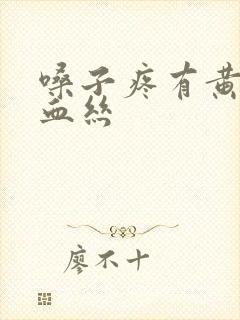 嗓子疼有黄
血丝
廖不十